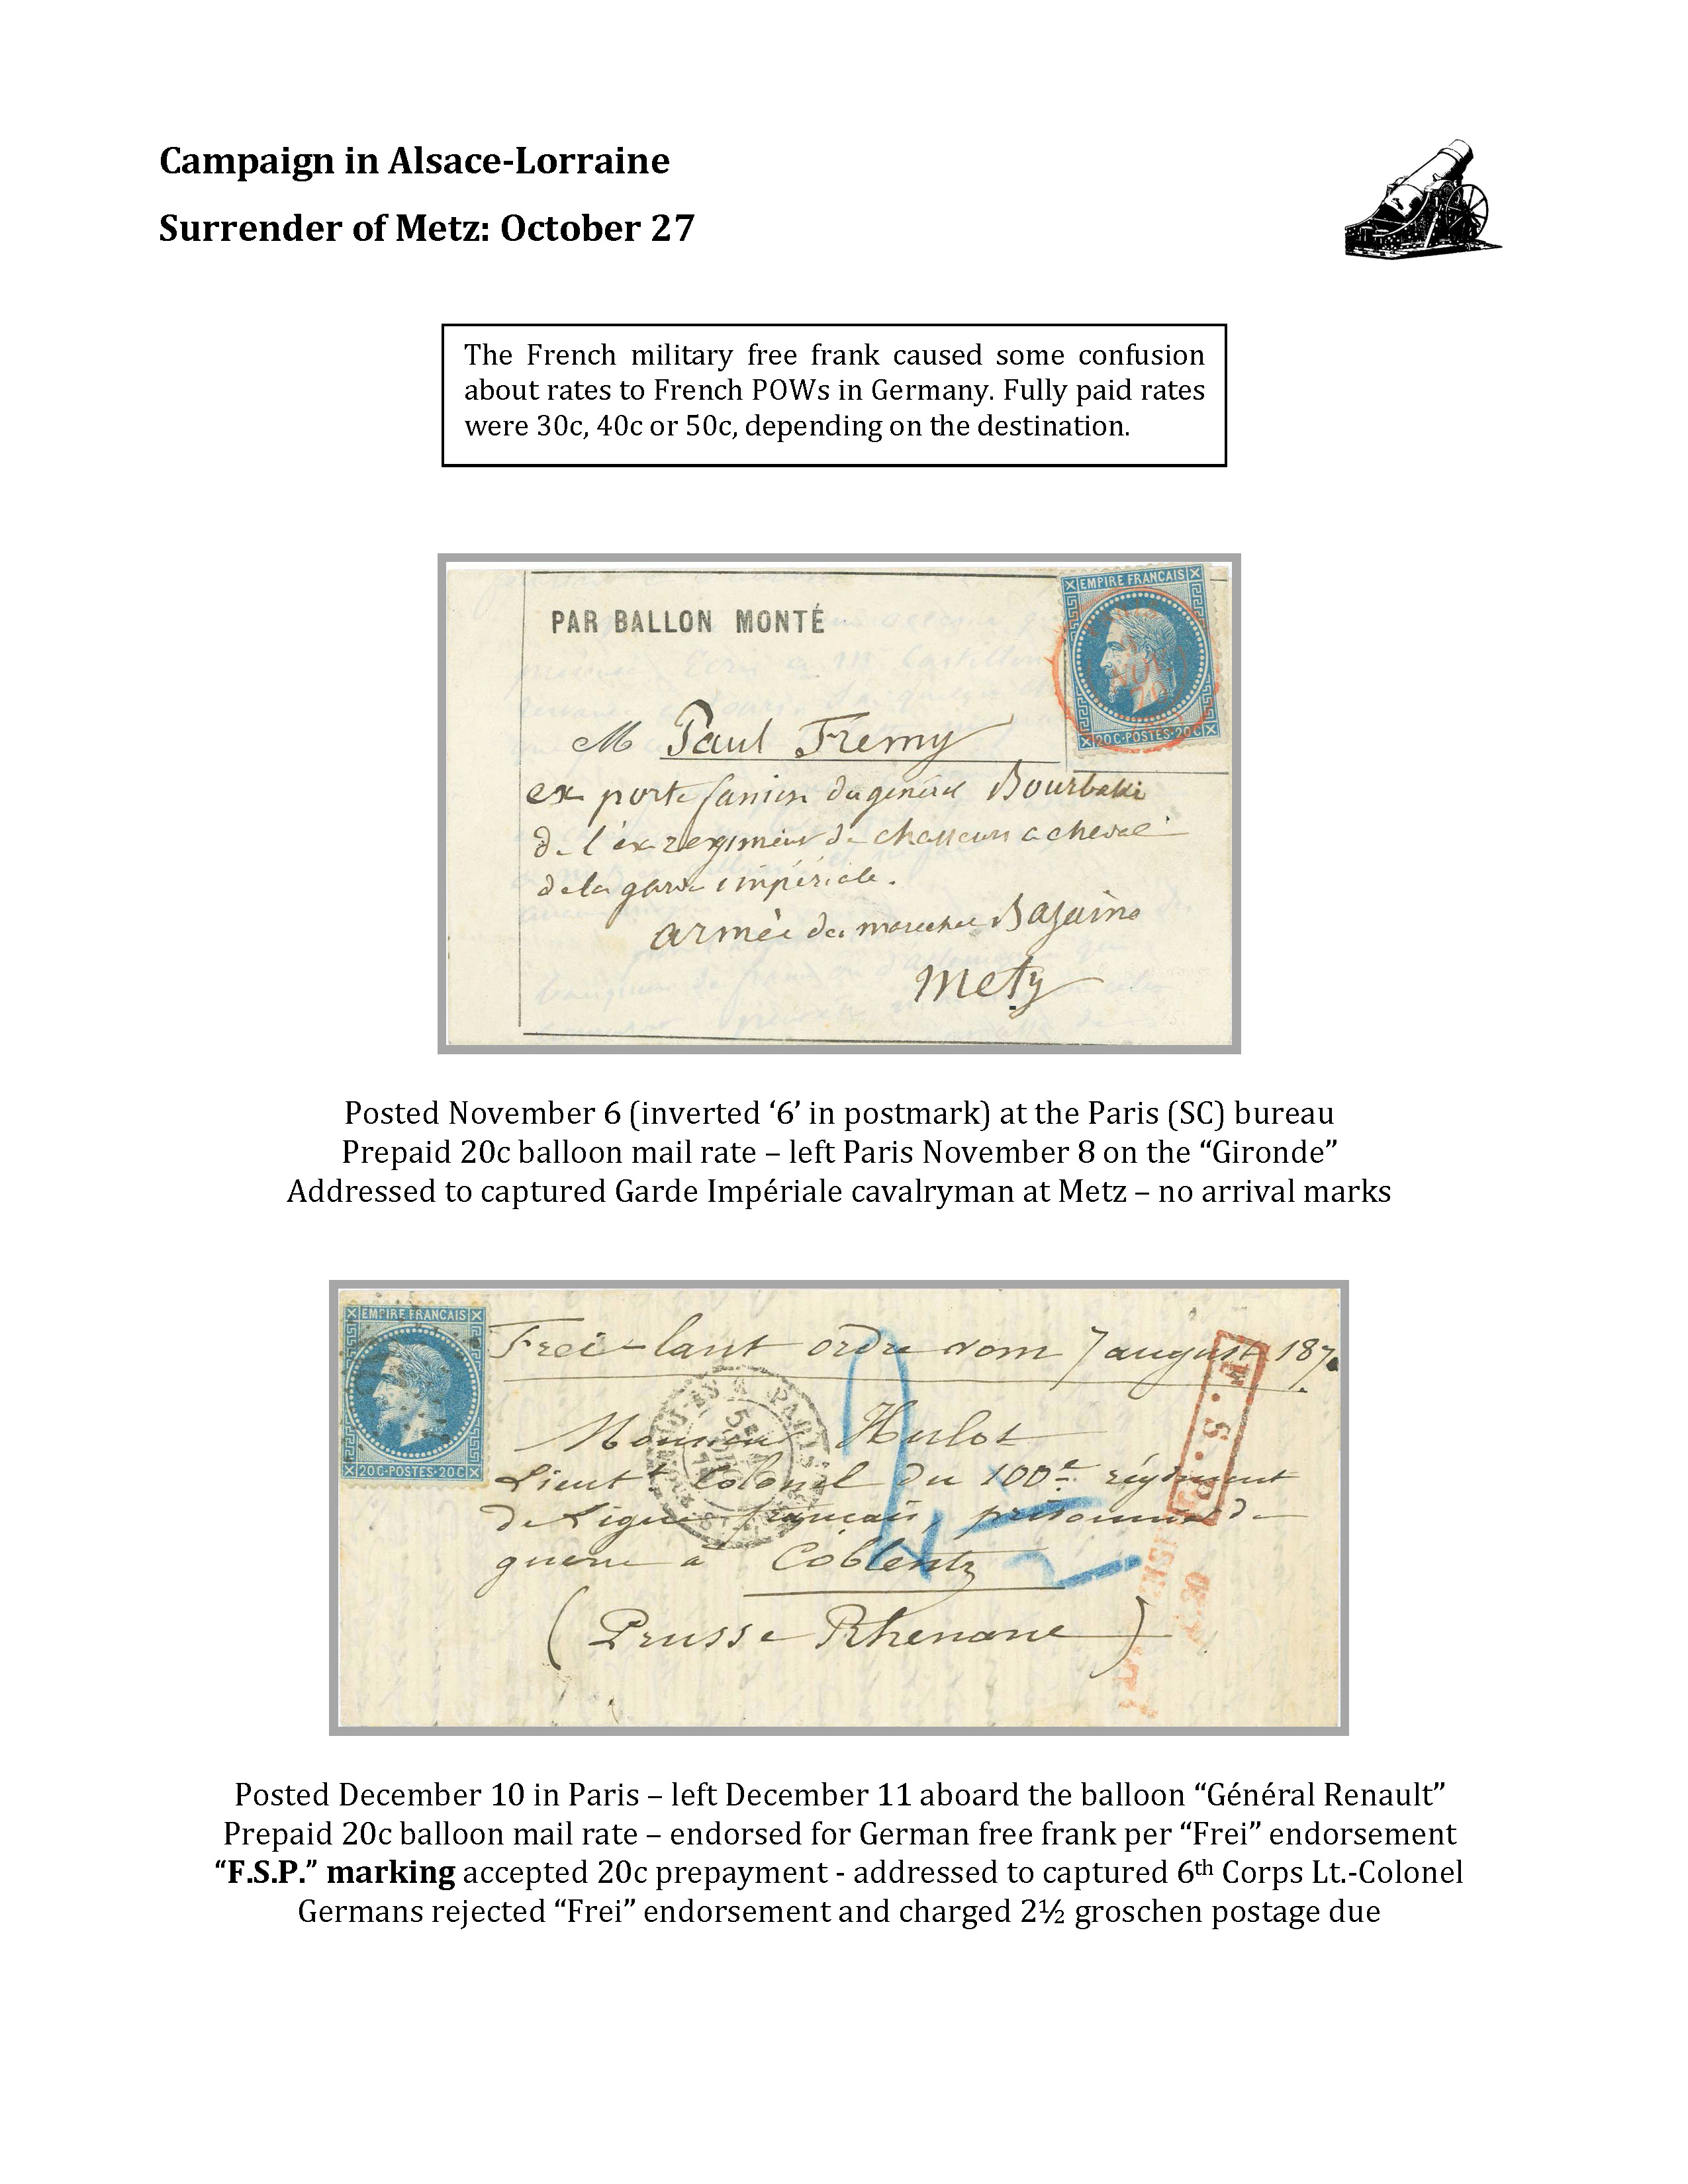 Campaign in Alsace-Lorraine
Surrender of Metz: October 27
The French military free frank caused some confusion
about rates to French POWs in Germany. Fully paid rates
were 30c, 40c or 50c, depending on the destination.
PAR BALLON MONTÉ
EMPIRE FRANCAIS
20C·POSTES·20C
M Paul Fremy
ex porte fanion du général Bourbaki
de l'ex regiment de chasseurs a cheval
de la garde impériale.
armée du marechal Bazaine
Metz
Posted November 6 (inverted ‘6’ in postmark) at the Paris (SC) bureau
Prepaid 20c balloon mail rate – left Paris November 8 on the “Gironde”
Addressed to captured Garde Impériale cavalryman at Metz – no arrival marks
EMPIRE FRANCAIS
20C·POSTES·20C
Frei laut ordre vom 7 august 187
F.S.P.
PARIS
Monsieur Hulot
Lieutt Colonel du 100e régiment
de Ligne français, prisonnier de
guerre a Coblentz
(Prusse Rhenane)
Posted December 10 in Paris – left December 11 aboard the balloon “Général Renault”
Prepaid 20c balloon mail rate – endorsed for German free frank per “Frei” endorsement
“F.S.P.” marking accepted 20c prepayment - addressed to captured 6th Corps Lt.-Colonel
Germans rejected “Frei” endorsement and charged 2½ groschen postage due